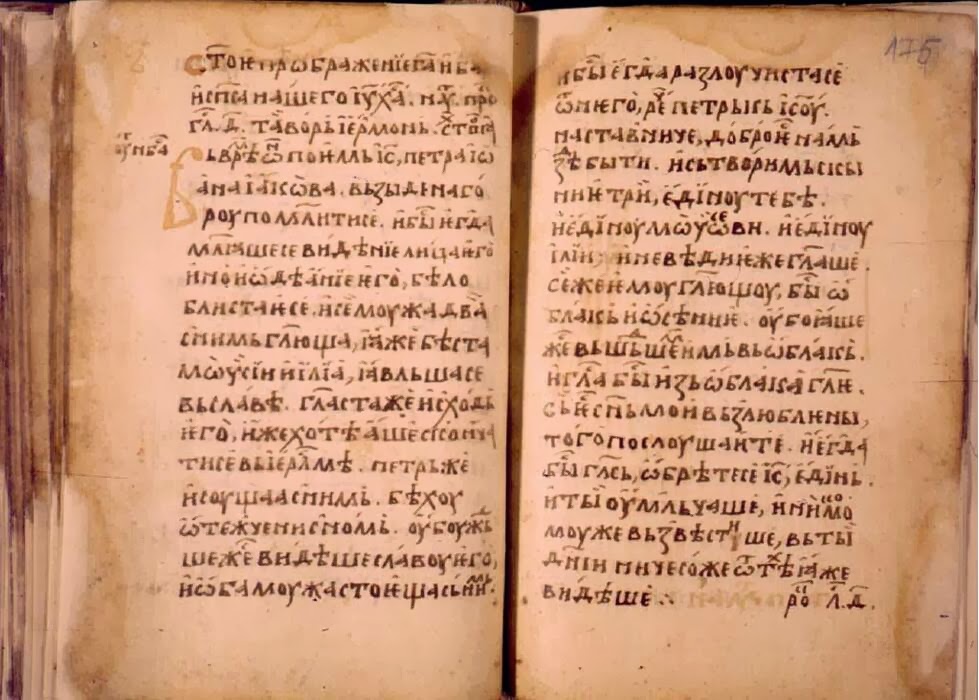 Стоѥ прѡбражениѥ га и ба
и спса нашего іу ха. пⷪр
гл҃. д҃. таворь і ермонь. стⷯ
Вь врѣⷨ ѡⁿ поимь іс, петра і їѡ
ана і іакѡва. вьзыде на го
роу помлитисе. и бы ѥгда
млꙗшесе видѣниѥ лица ѥго
ино и ѡдѣаниѥ ѥго, бѣло
блистаѥсе. и се моужа два
с нимь глюща, ꙗже бѣста
мѡуси и илїа, ꙗвльшасе
вь славѣ. гласта же исходь
ѥго, иже хотѣаше сконча
тисе вь іерⷭлмѣ. петрь же
и соущаа с нимь. бѣхоу
ѿежчени сномь. оубоужⷣь
шеже видѣше славоу ѥго,
и ѡба моужа стоꙗща сь нимь.
и бы ѥгда разлоучистасе
ѡ нѥго, реⷱ петрь кь ісоу.
наставниче, добро ѥ намь
зⷣѣ быти. и сьтворимь сѣ
ни и три, ѥдіноу тебѣ.
и ѥдїноу мѡѵсеѡви. и ѥдїноу
їлїи, и не вѣди ѥже глаше.
се же ѥмоу глющоу, бы ѡ
блакь и ѡсѣни ѥ. оубоꙗше
же вьшⷣьшеⷨ имь вь ѡблакь.
и гла бы изь ѡблака глѥ.
сь ѥ снь мои вьзлюблены,
того послоушаите. и ѥгда
бы глсь, ѡбрѣтесе іс, ѥдїнь.
и ты оумльчаше, и никомⷪ
моуже вьзвѣстⁿише, вь ты
дни ничесоже ѿ тѣⷯ ꙗже
видѣше ⁘